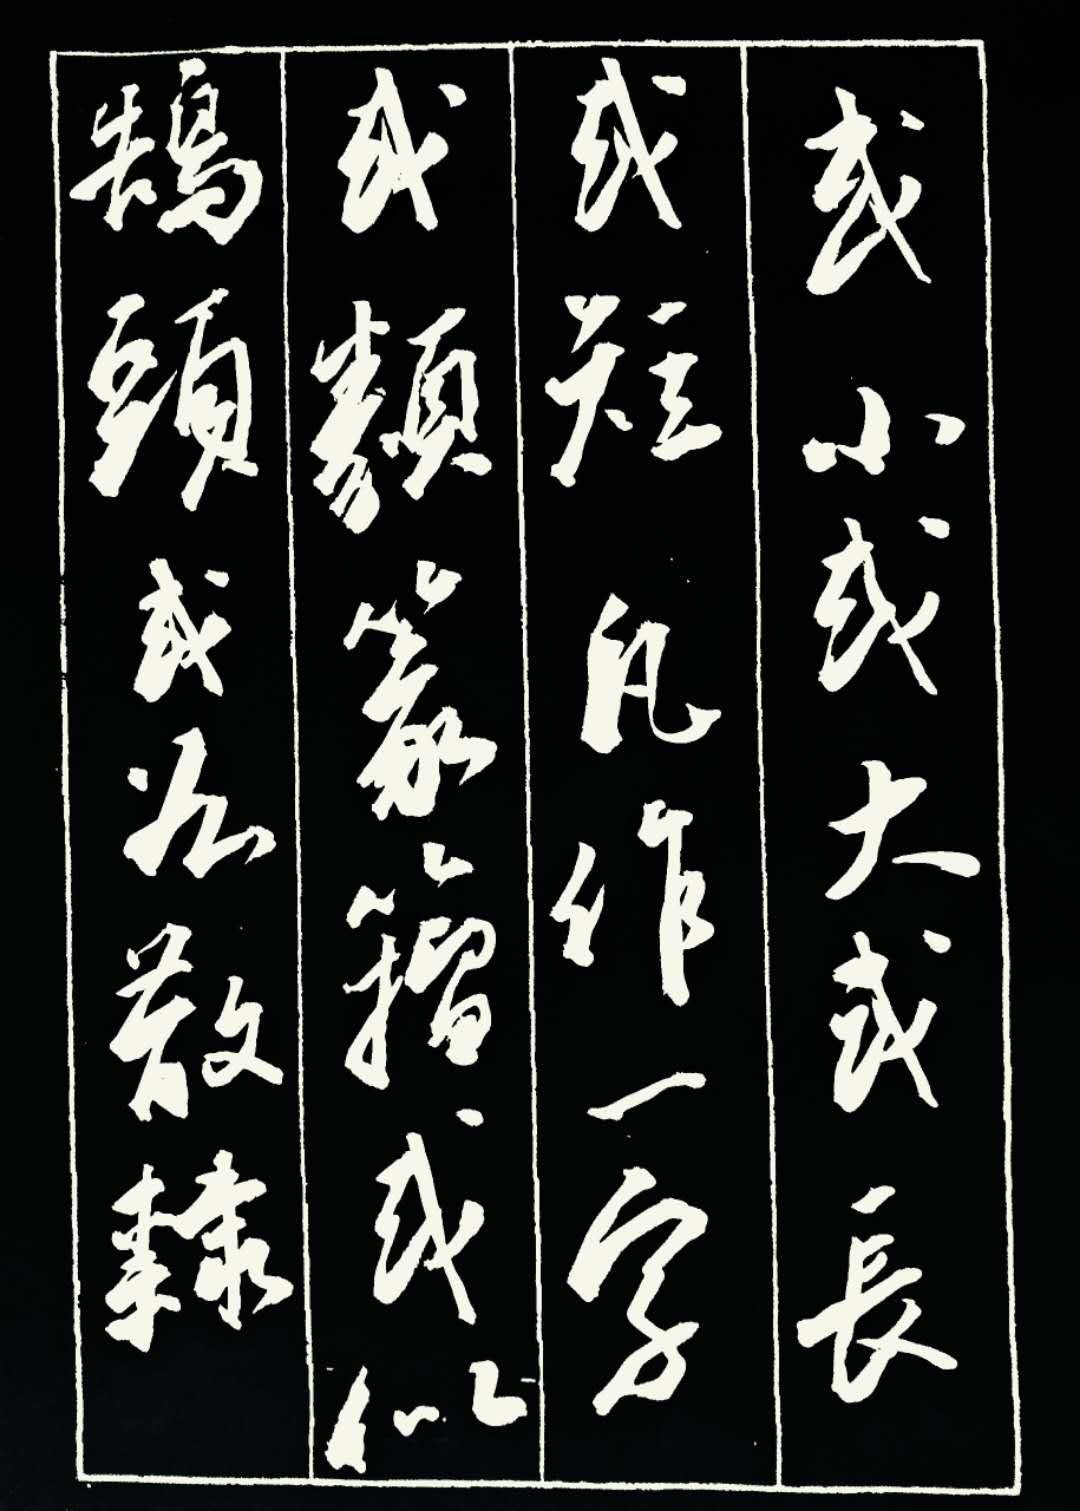 或小或大或長
或短凡作一字
或類篆籀或似
鵠頭或為散隸